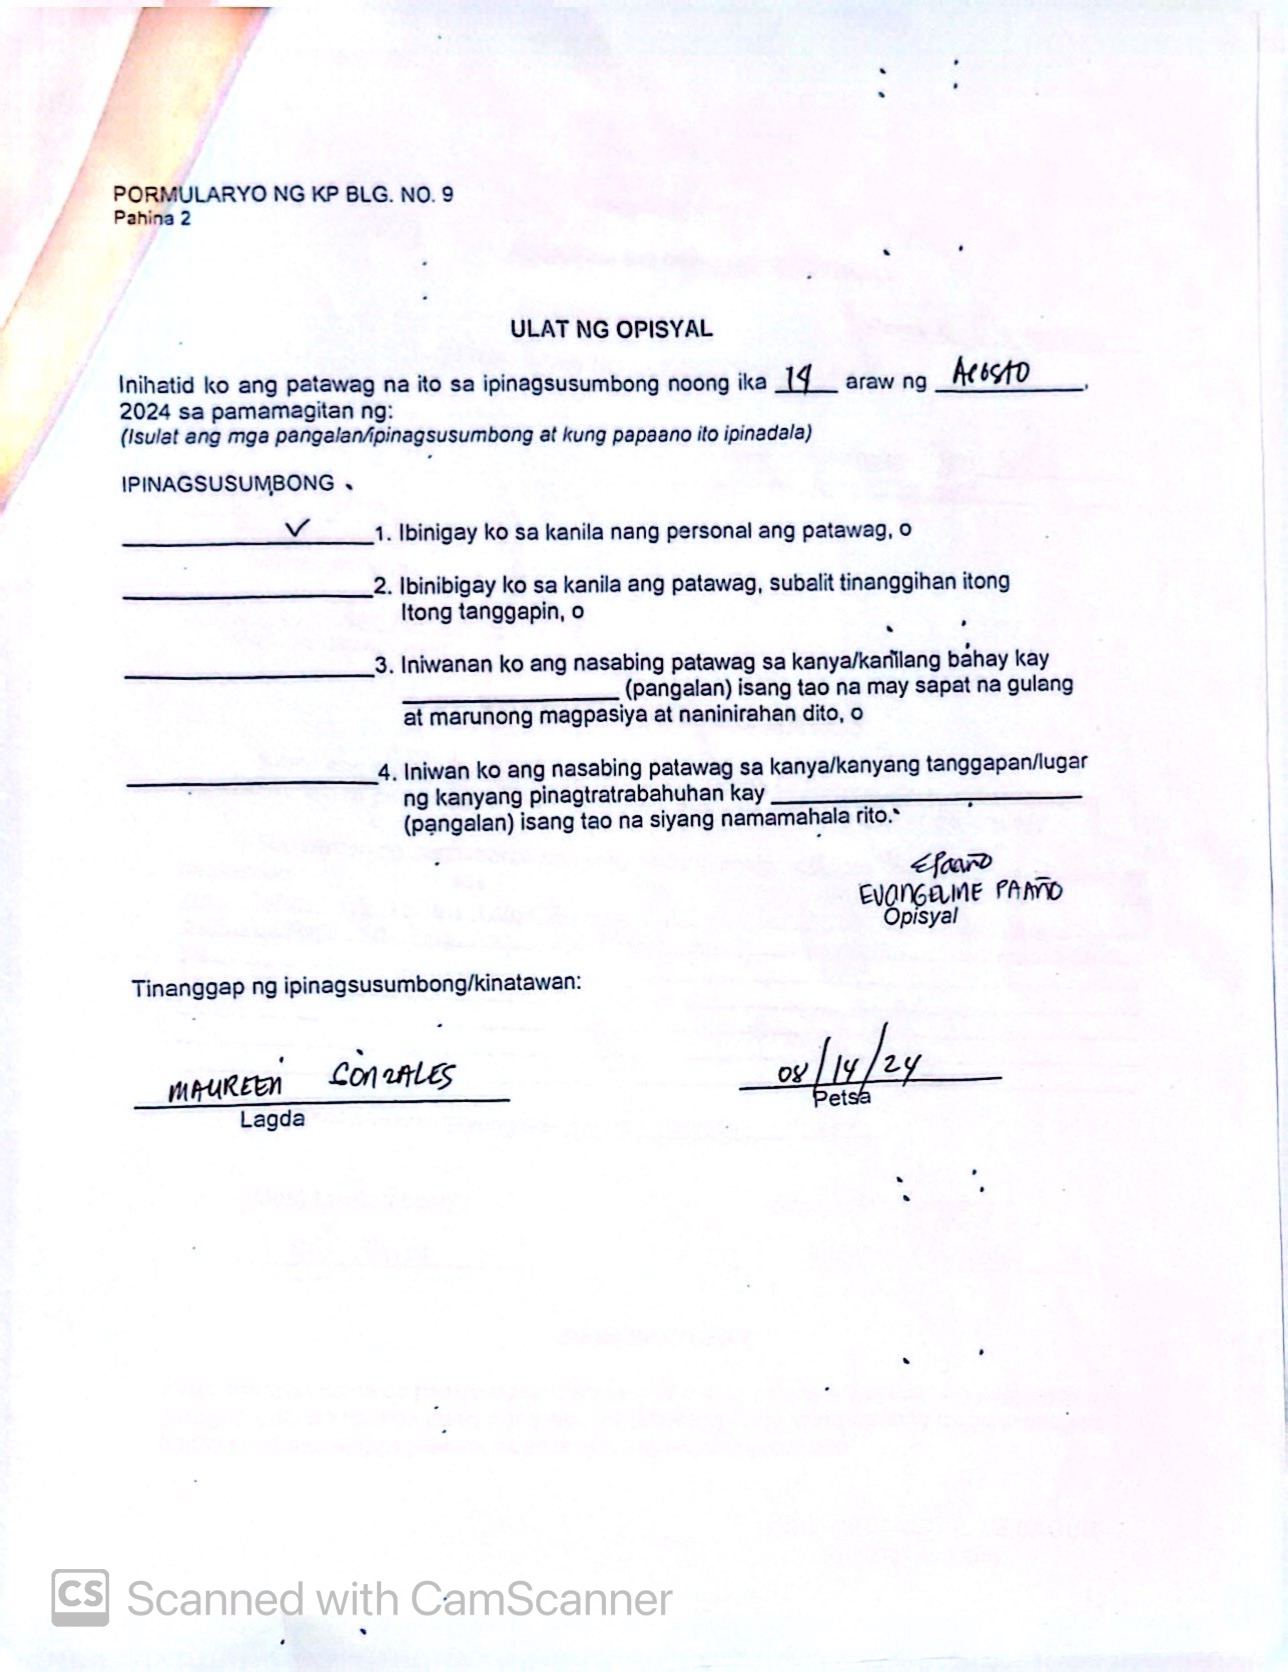 PORMULARYO NG KP BLG. NO. 9
Pahina 2
ULAT NG OPISYAL
Inihatid ko ang patawag na ito sa ipinagsusumbong noong ika 14 araw ng AGOSTO,
2024 sa pamamagitan ng:
(Isulat ang mga pangalan/ipinagsusumbong at kung papaano ito ipinadala)
IPINAGSUSUMBONG
✓ 1. Ibinigay ko sa kanila nang personal ang patawag, o
2. Ibinibigay ko sa kanila ang patawag, subalit tinanggihan itong
Itong tanggapin, o
3. Iniwanan ko ang nasabing patawag sa kanya/kanilang bahay kay
(pangalan) isang tao na may sapat na gulang
at marunong magpasiya at naninirahan dito, o
4. Iniwan ko ang nasabing patawag sa kanya/kanyang tanggapan/lugar
ng kanyang pinagtratrabahuhan kay
(pangalan) isang tao na siyang namamahala rito.
EPaaño
EVANGELINE PAAÑO
Opisyal
Tinanggap ng ipinagsusumbong/kinatawan:
MAUREEN GONZALES 08/14/24
Lagda Petsa
CS Scanned with CamScanner